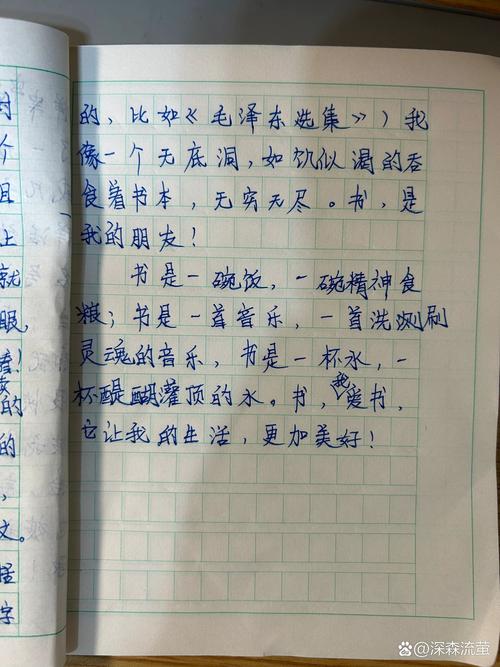 时
介
且
上
就
眼,
的
的
,
文。
括
字
的,比如《毛泽东选集》)我
像一个无底洞,如饥似渴的吞
食着书本,无穷无尽。书,是
我的朋友!
书是一碗饭,一碗精神食
粮;书是一首音乐,一首洗涮刷
灵魂的音乐,书是一杯水,一
杯醍醐灌顶的水。书,我爱书,
它让我的生活,更加美好!
百度@深森流萤